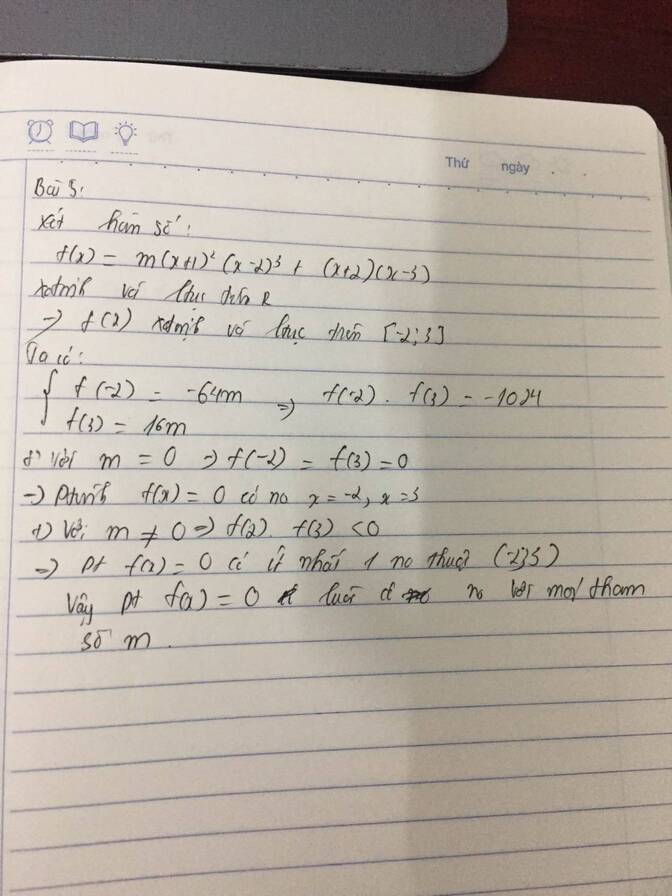 Thứ ngày . .
Bài 5:
Xét hàm số:
f(x) = m(x+1)² (x-2)³ + (x+2)(x-3)
xđịnh và liên tục trên R
=> f(x) xđịnh và liên tục trên [-2;3]
Ta có:
{ f(-2) = -64m => f(-2) . f(3) = -1024
f(3) = 16m
+) Với m = 0 => f(-2) = f(3) = 0
=> Ptrình f(x) = 0 có no x = -2, x = 3
+) Với m ≠ 0 => f(2). f(3) < 0
=> Pt f(x) = 0 có ít nhất 1 no thuộc (-2;3)
Vậy pt f(x) = 0 luôn có no với mọi tham
số m.